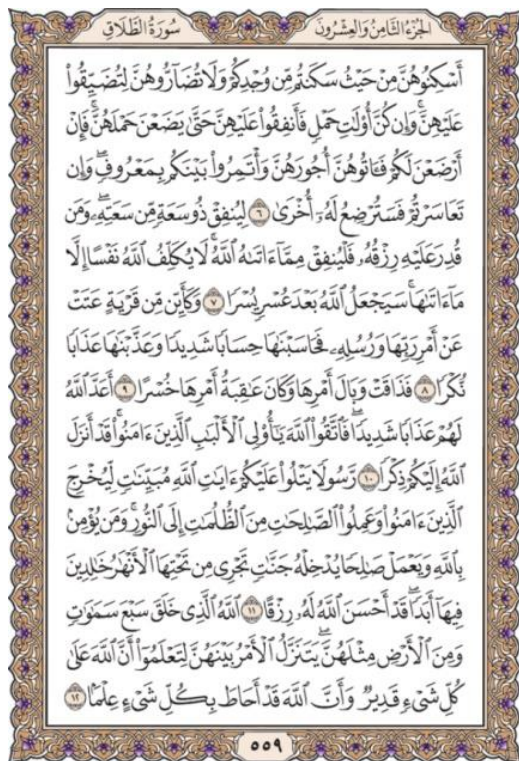 الجزء الثامن والعشرون
سورة الطلاق
أَسْكِنُوهُنَّ مِنْ حَيْثُ سَكَنتُم مِّن وُجْدِكُمْ وَلَا تُضَآرُّوهُنَّ لِتُضَيِّقُوا۟
عَلَيْهِنَّ ۚ وَإِن كُنَّ أُو۟لَٰتِ حَمْلٍ فَأَنفِقُوا۟ عَلَيْهِنَّ حَتَّىٰ يَضَعْنَ حَمْلَهُنَّ ۚ فَإِنْ
أَرْضَعْنَ لَكُمْ فَـَٔاتُوهُنَّ أُجُورَهُنَّ ۖ وَأْتَمِرُوا۟ بَيْنَكُم بِمَعْرُوفٍ ۖ وَإِن
تَعَاسَرْتُمْ فَسَتُرْضِعُ لَهُۥٓ أُخْرَىٰ ٦ لِيُنفِقْ ذُو سَعَةٍ مِّن سَعَتِهِۦ ۖ وَمَن
قُدِرَ عَلَيْهِ رِزْقُهُۥ فَلْيُنفِقْ مِمَّآ ءَاتَىٰهُ ٱللَّهُ ۚ لَا يُكَلِّفُ ٱللَّهُ نَفْسًا إِلَّا
مَآ ءَاتَىٰهَا ۚ سَيَجْعَلُ ٱللَّهُ بَعْدَ عُسْرٍ يُسْرًا ٧ وَكَأَيِّن مِّن قَرْيَةٍ عَتَتْ
عَنْ أَمْرِ رَبِّهَا وَرُسُلِهِۦ فَحَاسَبْنَٰهَا حِسَابًا شَدِيدًا وَعَذَّبْنَٰهَا عَذَابًا
نُّكْرًا ٨ فَذَاقَتْ وَبَالَ أَمْرِهَا وَكَانَ عَٰقِبَةُ أَمْرِهَا خُسْرًا ٩ أَعَدَّ ٱللَّهُ
لَهُمْ عَذَابًا شَدِيدًا ۖ فَٱتَّقُوا۟ ٱللَّهَ يَٰٓأُو۟لِى ٱلْأَلْبَٰبِ ٱلَّذِينَ ءَامَنُوا۟ ۚ قَدْ أَنزَلَ
ٱللَّهُ إِلَيْكُمْ ذِكْرًا ١٠ رَّسُولًا يَتْلُوا۟ عَلَيْكُمْ ءَايَٰتِ ٱللَّهِ مُبَيِّنَٰتٍ لِّيُخْرِجَ
ٱلَّذِينَ ءَامَنُوا۟ وَعَمِلُوا۟ ٱلصَّٰلِحَٰتِ مِنَ ٱلظُّلُمَٰتِ إِلَى ٱلنُّورِ ۚ وَمَن يُؤْمِنۢ
بِٱللَّهِ وَيَعْمَلْ صَٰلِحًا يُدْخِلْهُ جَنَّٰتٍ تَجْرِى مِن تَحْتِهَا ٱلْأَنْهَٰرُ خَٰلِدِينَ
فِيهَآ أَبَدًا ۖ قَدْ أَحْسَنَ ٱللَّهُ لَهُۥ رِزْقًا ١١ ٱللَّهُ ٱلَّذِى خَلَقَ سَبْعَ سَمَٰوَٰتٍ
وَمِنَ ٱلْأَرْضِ مِثْلَهُنَّ يَتَنَزَّلُ ٱلْأَمْرُ بَيْنَهُنَّ لِتَعْلَمُوٓا۟ أَنَّ ٱللَّهَ عَلَىٰ
كُلِّ شَىْءٍ قَدِيرٌ وَأَنَّ ٱللَّهَ قَدْ أَحَاطَ بِكُلِّ شَىْءٍ عِلْمًۢا ١٢
٥٥٩